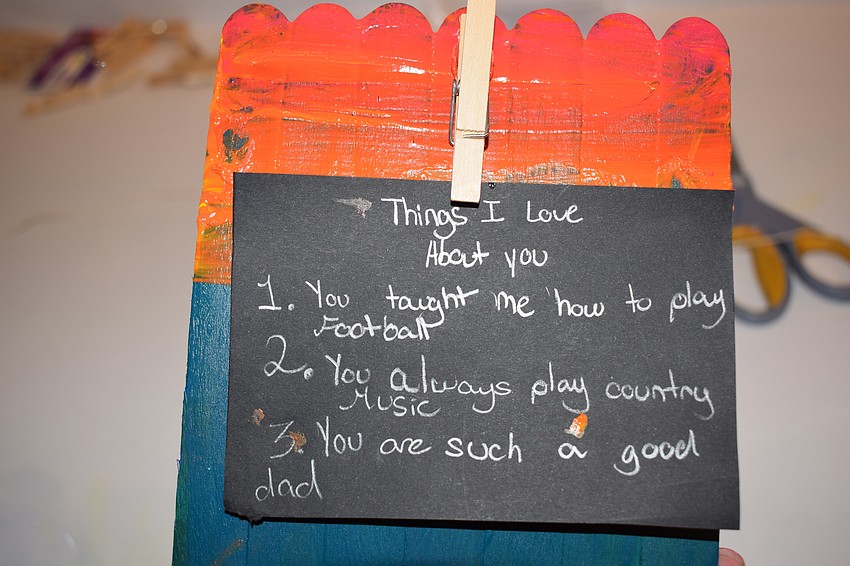 Things I Love
About you
1. You taught me how to play
Football
2. You always play country
Music
3. You are such a good
dad